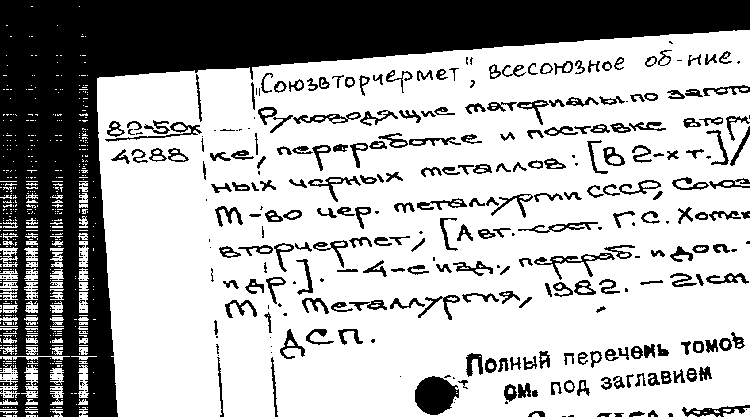 „Союзвторчермет", всесоюзное об-ние.
Руководящие материалы по загото
82-50к
4288
ке, переработке и поставке втори
ных черных металлов: [В 2-х т.]/
М-во чер. металлургии СССР, Союз
вторчермет; [Авт.-сост. Г.С. Хотек
и др.]. - 4-е изд., перераб. и доп. -
М.: Металлургия, 1982. - 21 см
ДСП.
Полный перечень томов
см. под заглавием